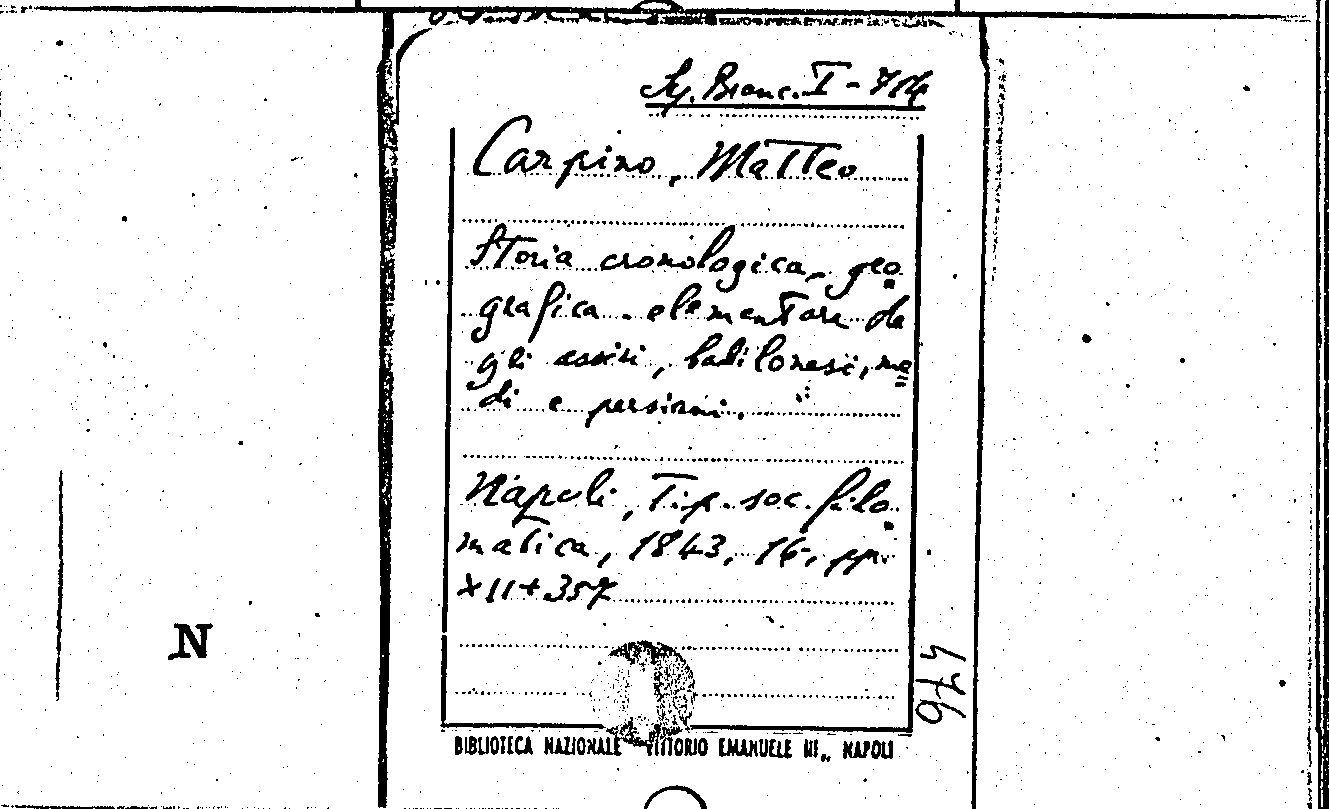 Sy. Branc. I - 714
Carpino, Matteo
Storia cronologica, geo
grafica. elementare de
gli assiri, babilonesi, me
di e persiani.
Napoli, Tip. soc. filo
matica, 1843, 16, pp.
XII+357
N
476
BIBLIOTECA NAZIONALE VITTORIO EMANUELE III„ NAPOLI